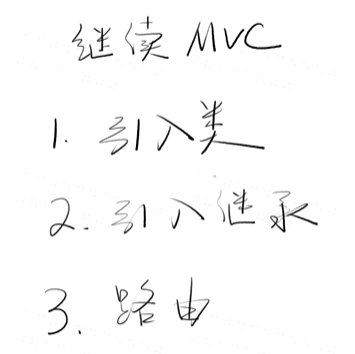 继续 MVC
1. 引入类
2. 引入继承
3. 路由